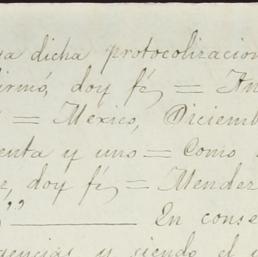 va dicha protocolizacion
firmó, doy fé, = An
= Mexico, Diciemb
enta y uno = Como
e, doy fé, = Mendez
" ———— En conse
gencias y siendo el